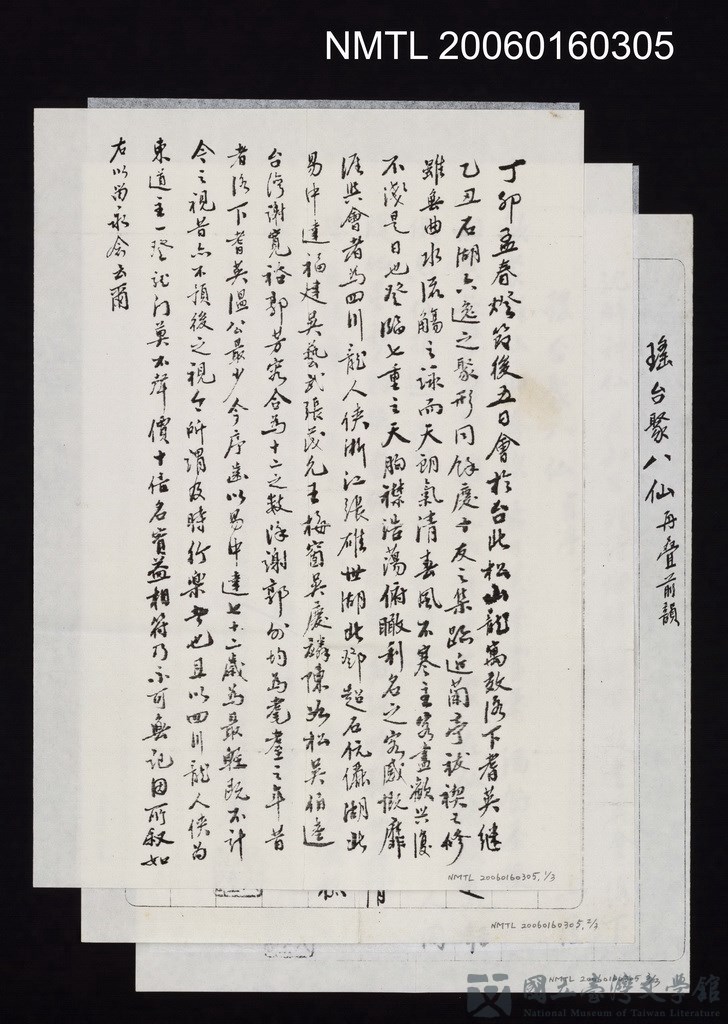 NMTL 20060160305
瑤台聚八仙 再疊前韻
丁卯孟春燈節後五日會於台北松山龍寓效洛下耆英継
乙丑石湖六逸之聚形同餘慶十友之集跡近蘭亭袚禊之修
雖無曲水流觴之詠而天朗氣清春風不寒主客盡歡興復
不淺是日也登臨七重之天胸襟浩蕩俯瞰利名之客感慨靡
涯與會者為四川龍人俠浙江張雄世湖北鄧超石伉儷湖北
易中達福建吳藝武張茂允王梅窗吳慶麟陳端松吳伯達
台灣謝寬裕郭芳客合為十二之數除謝郭外均為耄耋之年昔
者洛下耆英溫公最少今序齒以易中達七十二歲為最輕既不計
今之視昔亦不損後之視今所謂及時行樂者也且以四川龍人俠為
東道主一登龍門莫不聲價十倍名實益相符乃不可無記因所叙如
右以留永念云爾
NMTL 20060160305, 1/3
NMTL 20060160305, 2/3
NMTL 20060160305, 3/3
國立臺灣文學館
National Museum of Taiwan Literature